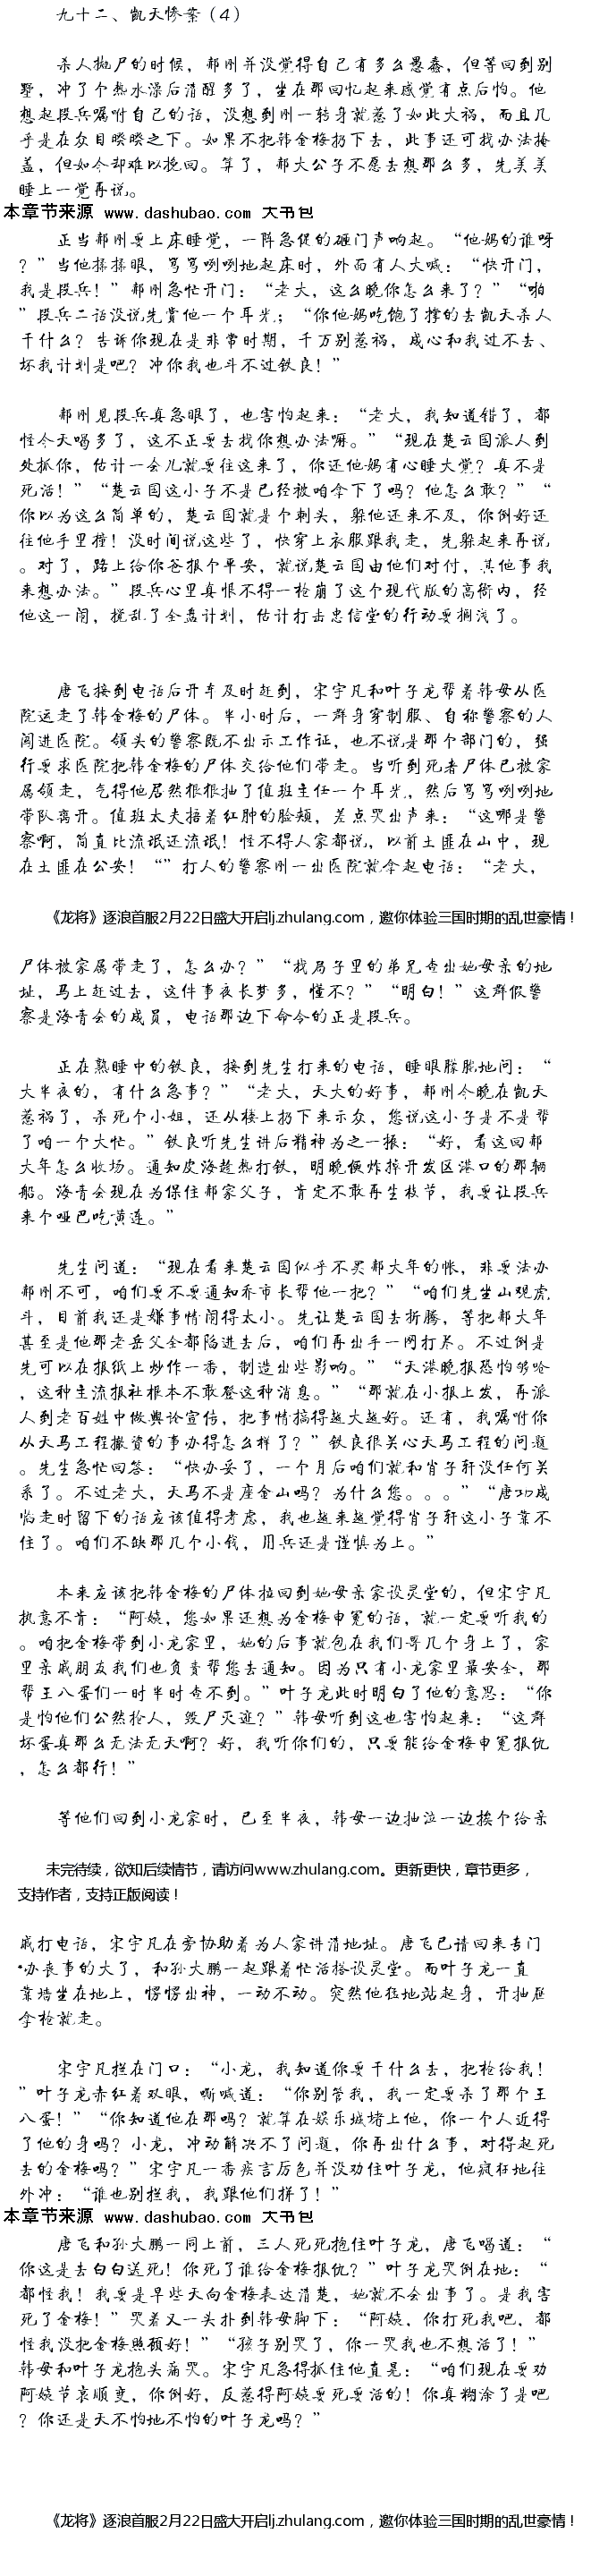 九十二、凯天惨案（4）
杀人抛尸的时候，郝刚并没觉得自己有多么愚蠢，但等回到别
墅，冲了个热水澡后清醒多了，坐在那回忆起来感觉有点后怕。他
想起段兵嘱咐自己的话，没想到刚一转身就惹了如此大祸，而且几
乎是在众目睽睽之下。如果不把韩金梅扔下去，此事还可找办法掩
盖，但如今却难以挽回。算了，郝大公子不愿去想那么多，先美美
睡上一觉再说。
本章节来源 www.dashubao.com 大书包
正当郝刚要上床睡觉，一阵急促的砸门声响起。“他妈的谁呀
？”当他揉揉眼，骂骂咧咧地起床时，外面有人大喊：“快开门，
我是段兵！”郝刚急忙开门：“老大，这么晚你怎么来了？”“啪
”段兵二话没说先赏他一个耳光；“你他妈吃饱了撑的去凯天杀人
干什么？告诉你现在是非常时期，千万别惹祸，成心和我过不去、
坏我计划是吧？冲你我也斗不过铁良！”
郝刚见段兵真急眼了，也害怕起来：“老大，我知道错了，都
怪今天喝多了，这不正要去找你想办法嘛。”“现在楚云国派人到
处抓你，估计一会儿就要往这来了，你还他妈有心睡大觉？真不是
死活！”“楚云国这小子不是已经被咱拿下了吗？他怎么敢？”“
你以为这么简单的，楚云国就是个刺头，躲他还来不及，你倒好还
往他手里撞！没时间说这些了，快穿上衣服跟我走，先躲起来再说
。对了，路上给你爸报个平安，就说楚云国由他们对付，其他事我
来想办法。”段兵心里真恨不得一枪崩了这个现代版的高衙内，经
他这一闹，搅乱了全盘计划，估计打击忠信堂的行动要搁浅了。
唐飞接到电话后开车及时赶到，宋宇凡和叶子龙帮着韩母从医
院运走了韩金梅的尸体。半小时后，一群身穿制服、自称警察的人
闯进医院。领头的警察既不出示工作证，也不说是那个部门的，强
行要求医院把韩金梅的尸体交给他们带走。当听到死者尸体已被家
属领走，气得他居然狠狠抽了值班主任一个耳光，然后骂骂咧咧地
带队离开。值班大夫捂着红肿的脸颊，差点哭出声来：“这哪是警
察啊，简直比流氓还流氓！怪不得人家都说，以前土匪在山中，现
在土匪在公安！“”打人的警察刚一出医院就拿起电话：“老大，
《龙将》逐浪首服2月22日盛大开启lj.zhulang.com，邀你体验三国时期的乱世豪情！
尸体被家属带走了，怎么办？”“找局子里的弟兄查出她母亲的地
址，马上赶过去，这件事夜长梦多，懂不？”“明白！”这群假警
察是海青会的成员，电话那边下命令的正是段兵。
正在熟睡中的铁良，接到先生打来的电话，睡眼朦胧地问：“
大半夜的，有什么急事？”“老大，天大的好事，郝刚今晚在凯天
惹祸了，杀死个小姐，还从楼上扔下来示众，您说这小子是不是帮
了咱一个大忙。”铁良听先生讲后精神为之一振：“好，看这回郝
大年怎么收场。通知皮海趁热打铁，明晚便炸掉开发区港口的那辆
船。海青会现在为保住郝家父子，肯定不敢再生枝节，我要让段兵
来个哑巴吃黄连。”
先生问道：“现在看来楚云国似乎不买郝大年的帐，非要法办
郝刚不可，咱们要不要通知乔市长帮他一把？”“咱们先坐山观虎
斗，目前我还是嫌事情闹得太小。先让楚云国去折腾，等把郝大年
甚至是他那老岳父全都陷进去后，咱们再出手一网打尽。不过倒是
先可以在报纸上炒作一番，制造出些影响。”“天港晚报恐怕够呛
，这种主流报社根本不敢登这种消息。”“那就在小报上发，再派
人到老百姓中做舆论宣传，把事情搞得越大越好。还有，我嘱咐你
从天马工程撤资的事办得怎么样了？”铁良很关心天马工程的问题
。先生急忙回答：“快办妥了，一个月后咱们就和肖子轩没任何关
系了。不过老大，天马不是座金山吗？为什么您。。。”“唐功成
临走时留下的话应该值得考虑，我也越来越觉得肖子轩这小子靠不
住了。咱们不缺那几个小钱，用兵还是谨慎为上。”
本来应该把韩金梅的尸体拉回到她母亲家设灵堂的，但宋宇凡
执意不肯：“阿姨，您如果还想为金梅申冤的话，就一定要听我的
。咱把金梅带到小龙家里，她的后事就包在我们哥几个身上了，家
里亲戚朋友我们也负责帮您去通知。因为只有小龙家里最安全，那
帮王八蛋们一时半时查不到。”叶子龙此时明白了他的意思：“你
是怕他们公然抢人，毁尸灭迹？”韩母听到这也害怕起来：“这群
坏蛋真那么无法无天啊？好，我听你们的，只要能给金梅申冤报仇
，怎么都行！”
等他们回到小龙家时，已至半夜，韩母一边抽泣一边挨个给亲
未完待续，欲知后续情节，请访问www.zhulang.com。更新更快，章节更多，
支持作者，支持正版阅读！
戚打电话，宋宇凡在旁协助着为人家讲清地址。唐飞已请回来专门
办丧事的大了，和孙大鹏一起跟着忙活搭设灵堂。而叶子龙一直
靠墙坐在地上，愣愣出神，一动不动。突然他猛地站起身，开抽屉
拿枪就走。
宋宇凡拦在门口：“小龙，我知道你要干什么去，把枪给我！
”叶子龙赤红着双眼，嘶喊道：“你别管我，我一定要杀了那个王
八蛋！”“你知道他在那吗？就算在娱乐城堵上他，你一个人近得
了他的身吗？小龙，冲动解决不了问题，你再出什么事，对得起死
去的金梅吗？”宋宇凡一番疾言厉色并没劝住叶子龙，他疯狂地往
外冲：“谁也别拦我，我跟他们拼了！”
本章节来源 www.dashubao.com 大书包
唐飞和孙大鹏一同上前，三人死死抱住叶子龙，唐飞喝道：“
你这是去白白送死！你死了谁给金梅报仇？”叶子龙哭倒在地：“
都怪我！我要是早些天向金梅表达清楚，她就不会出事了。是我害
死了金梅！”哭着又一头扑到韩母脚下：“阿姨，你打死我吧，都
怪我没把金梅照顾好！”“孩子别哭了，你一哭我也不想活了！”
韩母和叶子龙抱头痛哭。宋宇凡急得抓住他直晃：“咱们现在要劝
阿姨节哀顺变，你倒好，反惹得阿姨要死要活的！你真糊涂了是吧
？你还是天不怕地不怕的叶子龙吗？”
《龙将》逐浪首服2月22日盛大开启lj.zhulang.com，邀你体验三国时期的乱世豪情！